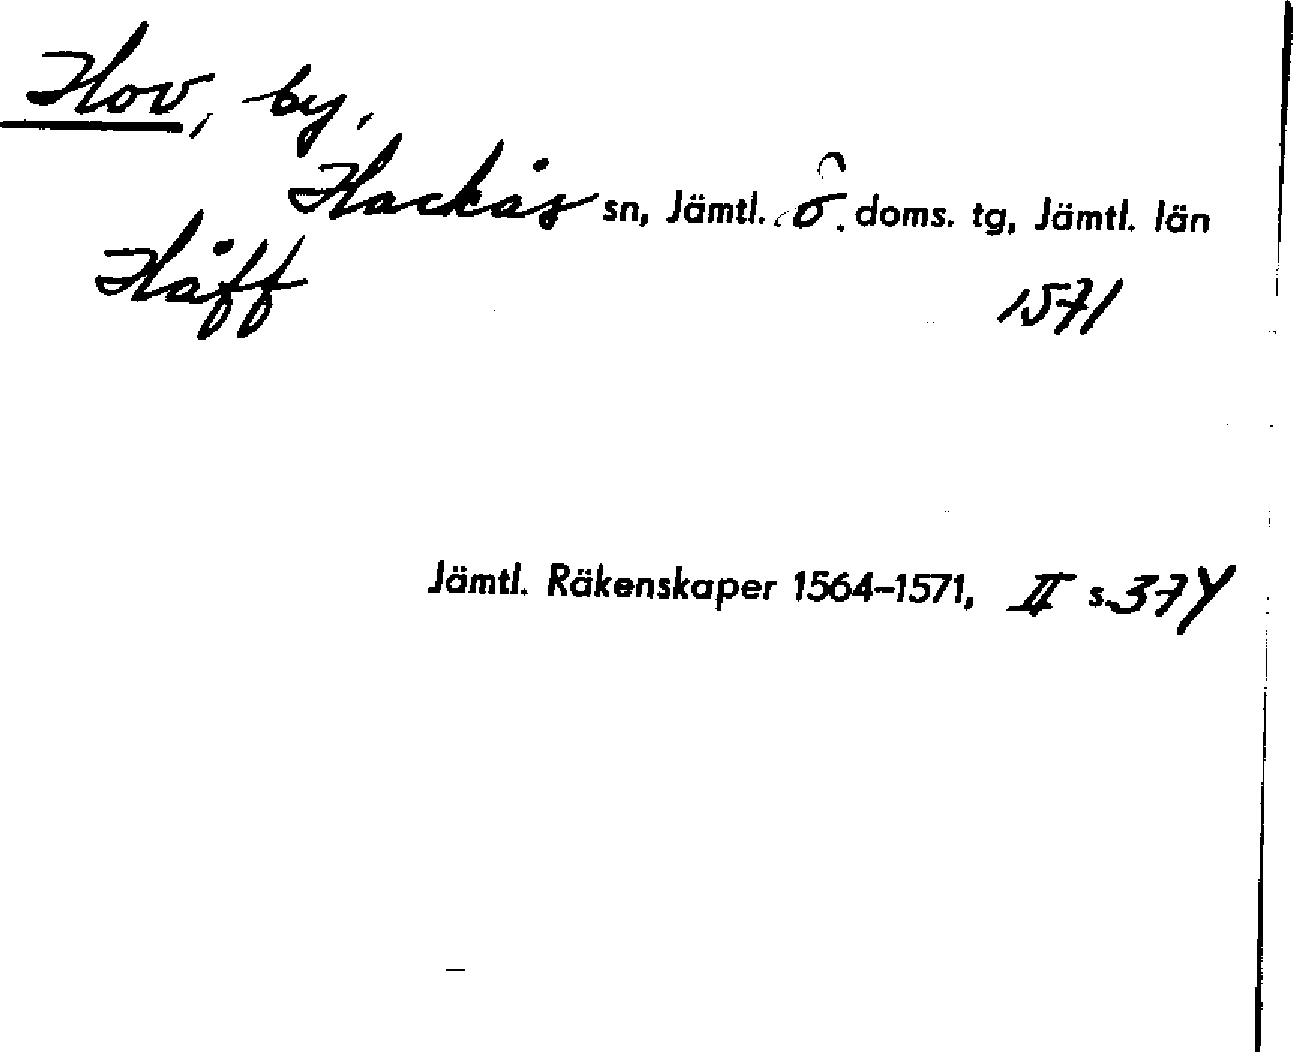 Hov, by,
Hackås sn, Jämtl. ö. doms. tg, Jämtl. län
Håff 1571
Jämtl. Räkenskaper 1564–1571, II s. 374